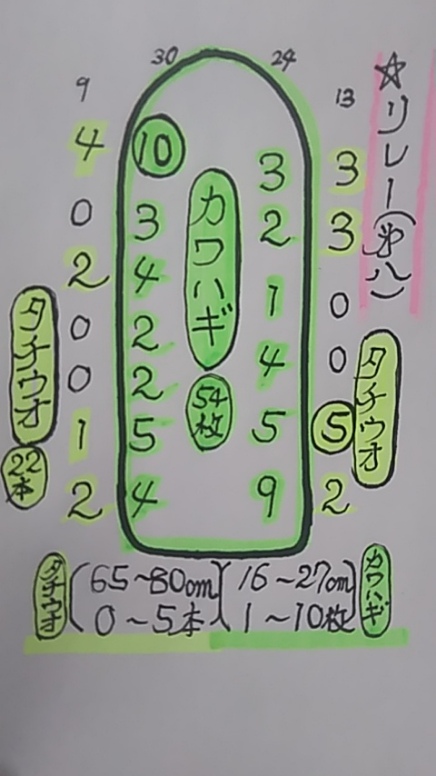 ☆リレー(第八)
9 30 24 13
4 10 3 3
0 3 2 3
2 4 1 0
0 2 4 0
0 2 5 5
1 5 9 2
2 4
カワハギ
54枚
タチウオ
22本
タチウオ
タチウオ(65~80cm)(16~27cm)カワハギ
0~5本 1~10枚